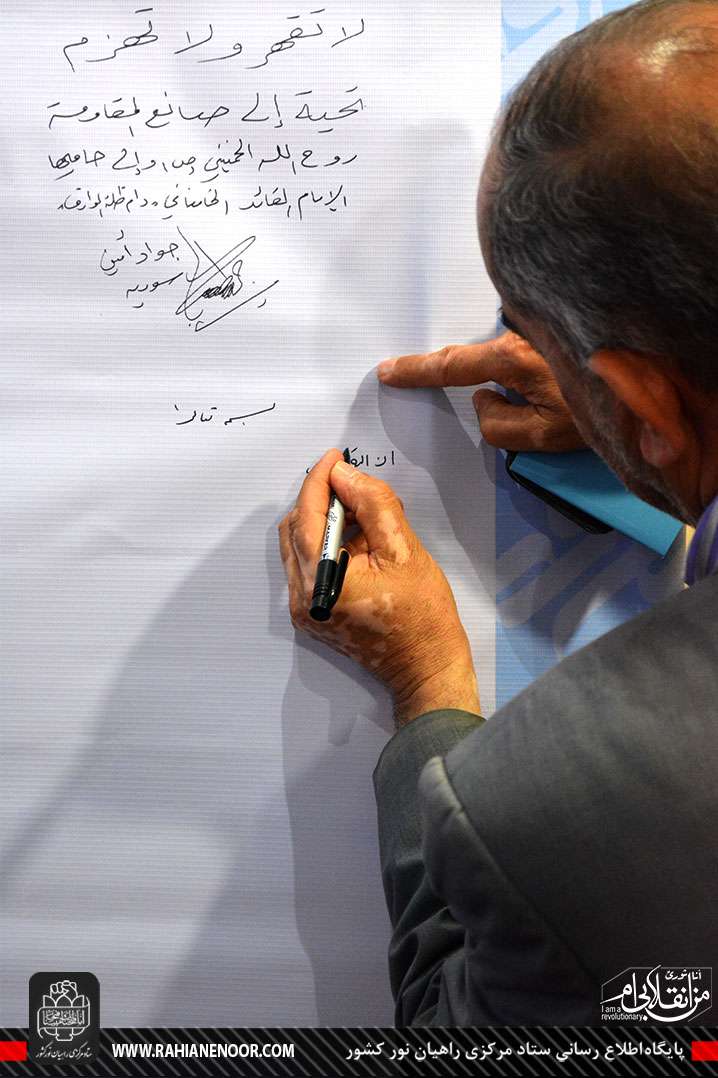 لا تقهر ولا تهزم
تحية إلى صانع المقاومة
روح الله الخميني (ص) وإلى حاميها
الإمام القائد الخامنائي دام ظله الوارف
جواد أمين
سوريه
بسمه تعالی
ان
انا ثوري
من انقلابی ام
I am a revolutionary
ستاد مرکزی راهیان نور کشور
WWW.RAHIANENOOR.COM
پایگاه اطلاع رسانی ستاد مرکزی راهیان نور کشور